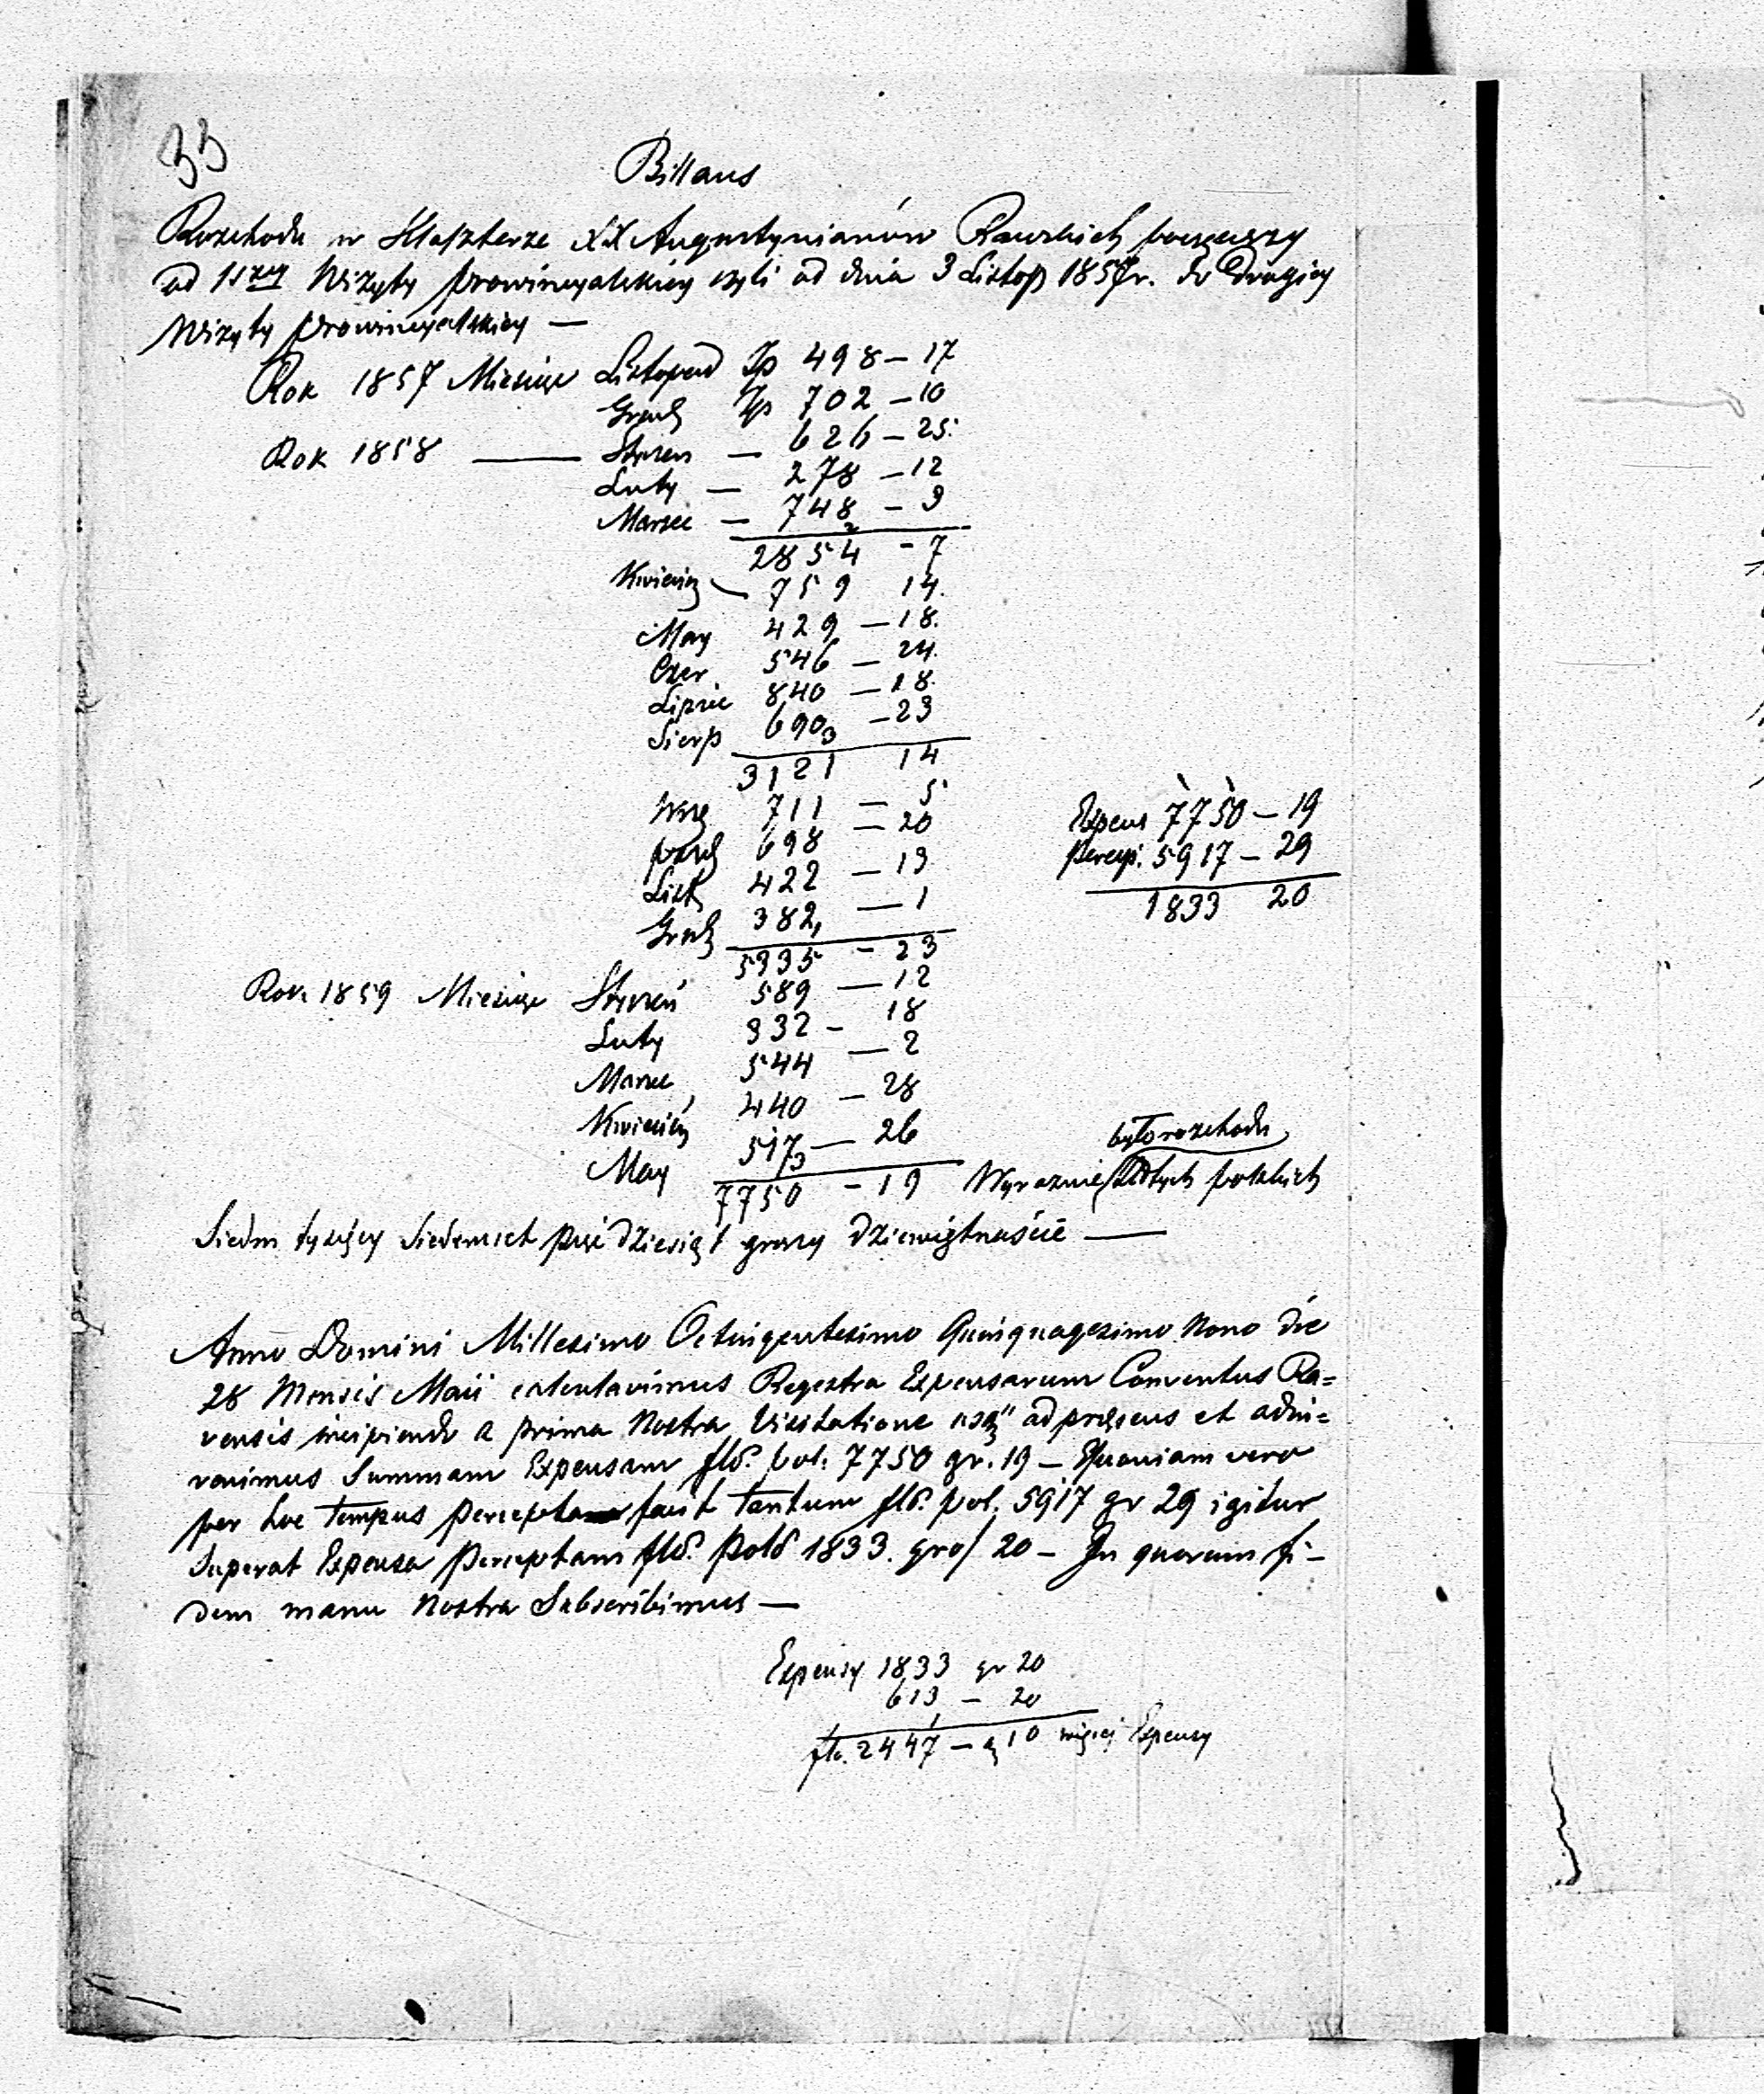 33
Billans
Rozchodu w Klasztorze XX Augustynianów Rawskich począwszy
od 1szey Wizyty prowincyalskiey czyli od dnia 3 Listop 1857 r. do drugiey
Wizyty prowincyalskiey —
Rok 1857 Miesiąc Listopad Zp 498 — 17
Grud Zp 702 — 10
Rok 1858 — Styczen — 626 — 25.
Luty — 278 — 12
Marzec — 748 — 3
2854 - 7
Kwiecień — 759 14.
May 429 — 18.
Czer 546 — 24.
Lipiec 840 — 18.
Sierp 690 — 23
3121 14
Wrz 711 — 5
pazd 698 — 20
List 422 — 13
Grud 382 — 1
5335 - 23
Expens 7750 — 19
percep. 5917 — 29
1833 20
Rok 1859 Miesiąc Styczeń 589 — 12
Luty 332 — 18
Marzec 544 — 2
Kwiecień 440 — 28
May 517 — 26
7750 - 19 Wyraznie było rozchodu Złotych polskich
Siedm tysięcy Siedemset pięćdziesiąt groszy dziewiętnaście —
Anno Domini Millesimo Octingentesimo Quinquagesimo Nono die
28 Mensis Maii calculavimus Regestra Expensarum Conventus Ra=
vensis incipiendo a prima Nostra Visitatione usq ad pręsens et adin=
venimus Summam Expensam flo. pol. 7750 gr. 19 — Quoniam vero
per hoc tempus percepta fuit tantum flo. pol. 5917 gr 29 igitur
Superat Expensa Perceptam flo. polo 1833. gro/ 20 — In quorum fi-
dem manu Nostra Subscribimus —
Expensy 1833 gr 20
613 — 20
flo. 2447 — g 10 więcej Expensy